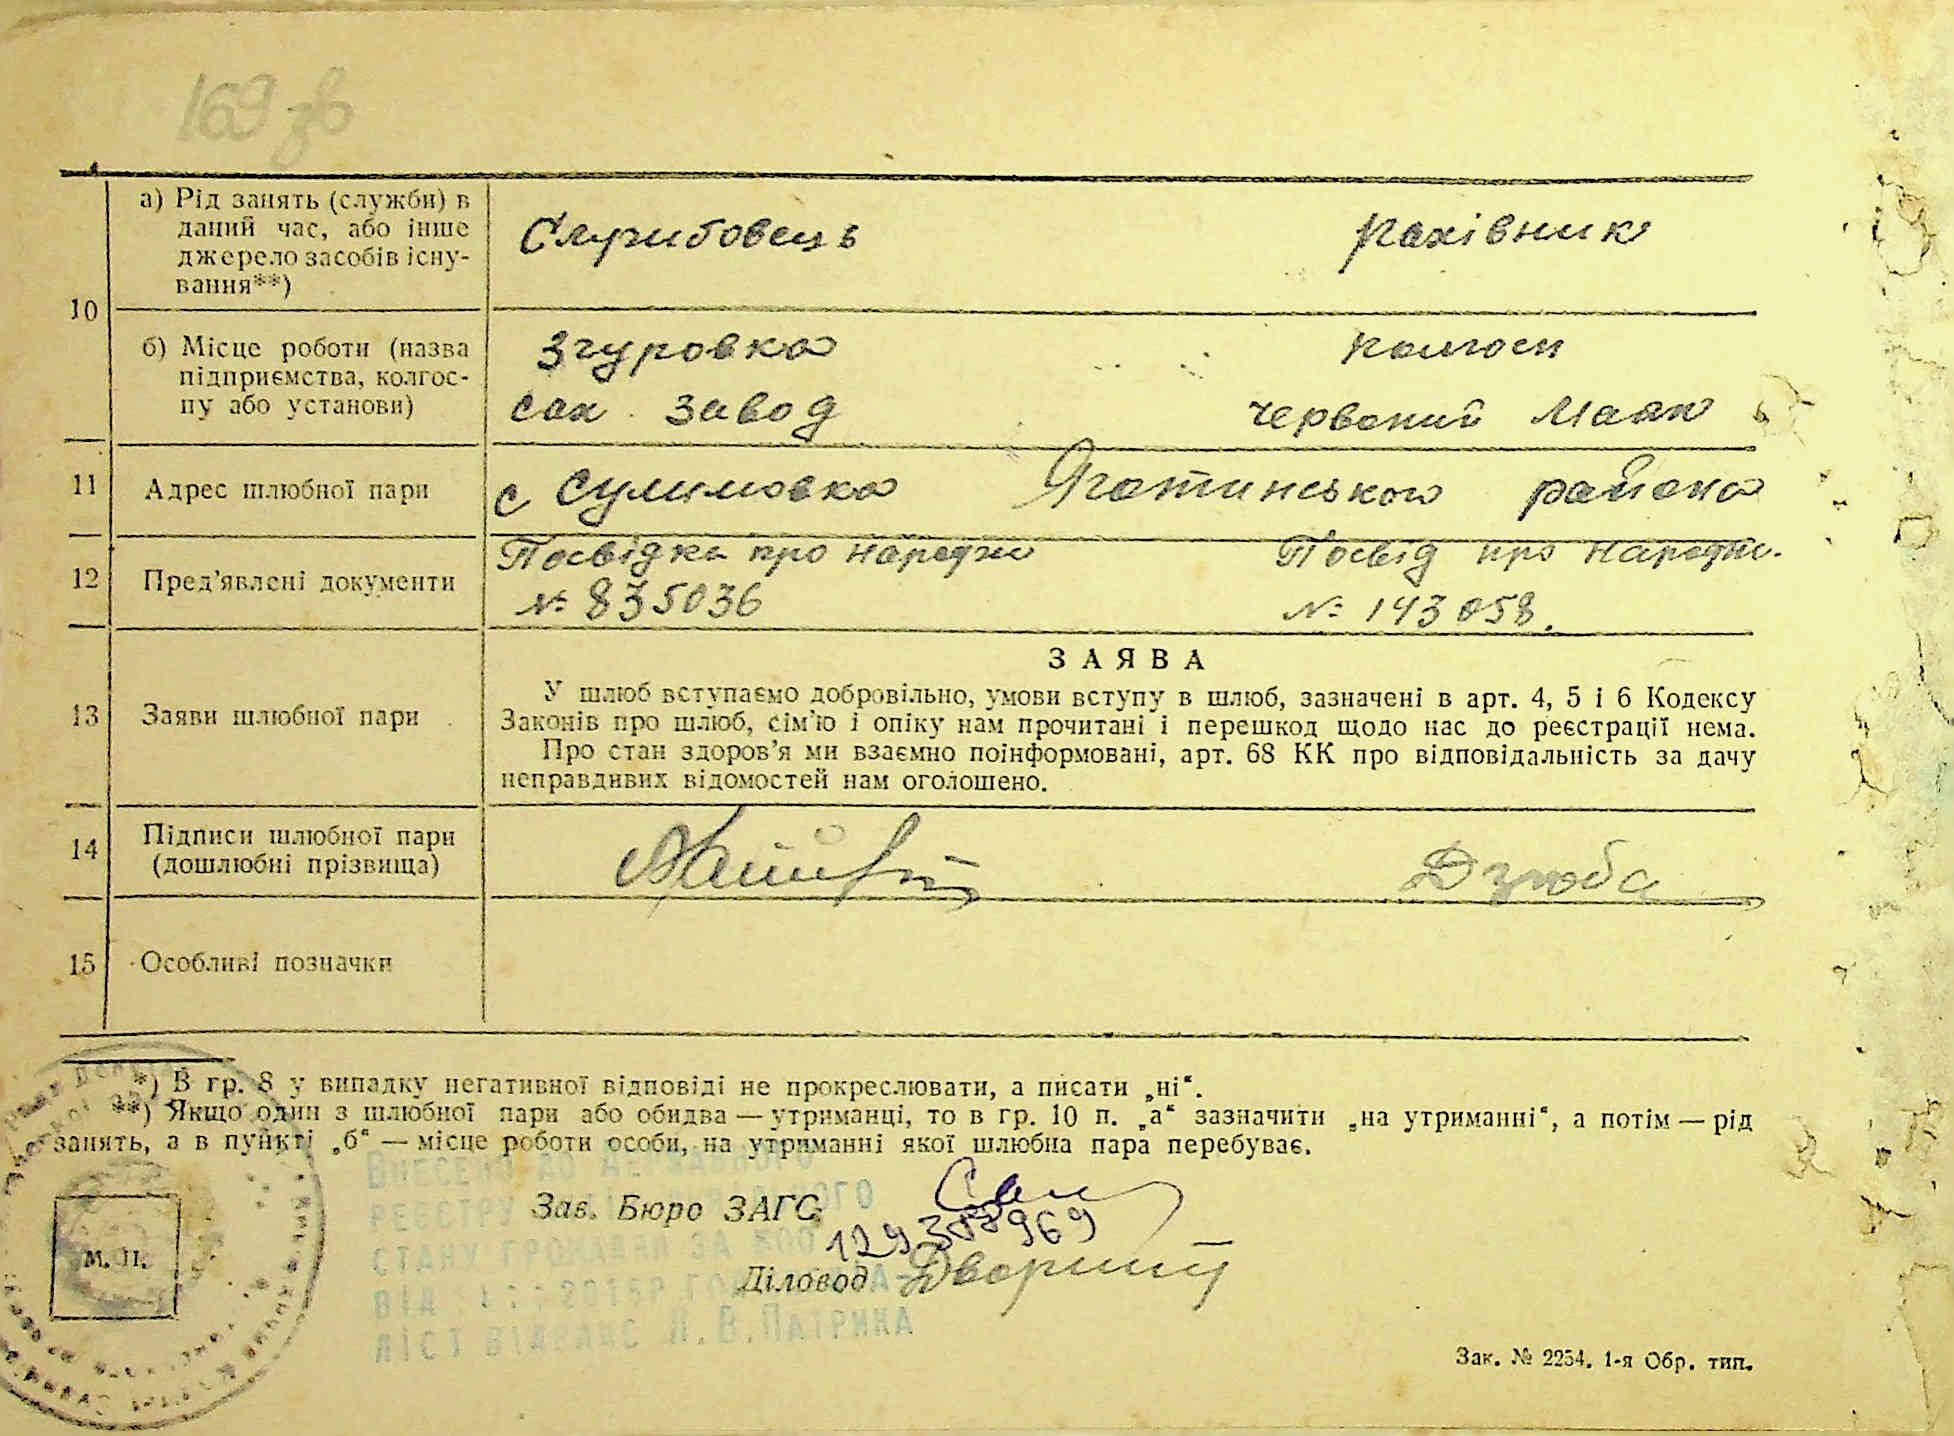 169 зв
а) Рід занять (служби) в
даний час, або інше
джерело засобів існу-
вання**)
Службовець рахівник
10
б) Місце роботи (назва
підприємства, колгос-
пу або установи)
Згуровка колгосп
сах. завод червоний Маяк
11 Адрес шлюбної пари с Сулимовка Яготинського района
12 Пред'явлені документи
Посвідка про народж Посвід про народж.
№ 835036 № 143058.
ЗАЯВА
13 Заяви шлюбної пари
У шлюб вступаємо добровільно, умови вступу в шлюб, зазначені в арт. 4, 5 і 6 Кодексу
Законів про шлюб, сім'ю і опіку нам прочитані і перешкод щодо нас до реєстрації нема.
Про стан здоров'я ми взаємно поінформовані, арт. 68 КК про відповідальність за дачу
неправдивих відомостей нам оголошено.
14 Підписи шлюбної пари
(дошлюбні прізвища)
Дзюба
15 Особливі позначки
*) В гр. 8 у випадку негативної відповіді не прокреслювати, а писати „ні“.
**) Якщо один з шлюбної пари або обидва — утриманці, то в гр. 10 п. „а“ зазначити „на утриманні“, а потім — рід
занять, а в пункті „б“ — місце роботи особи, на утриманні якої шлюбна пара перебуває.
Внесено до Державного
реєстру
стану громадян за
від 2015р
ліст Н.В.Патрика
Зав. Бюро ЗАГС
Діловод
М. П.
Зак. № 2254. 1-я Обр. тип.